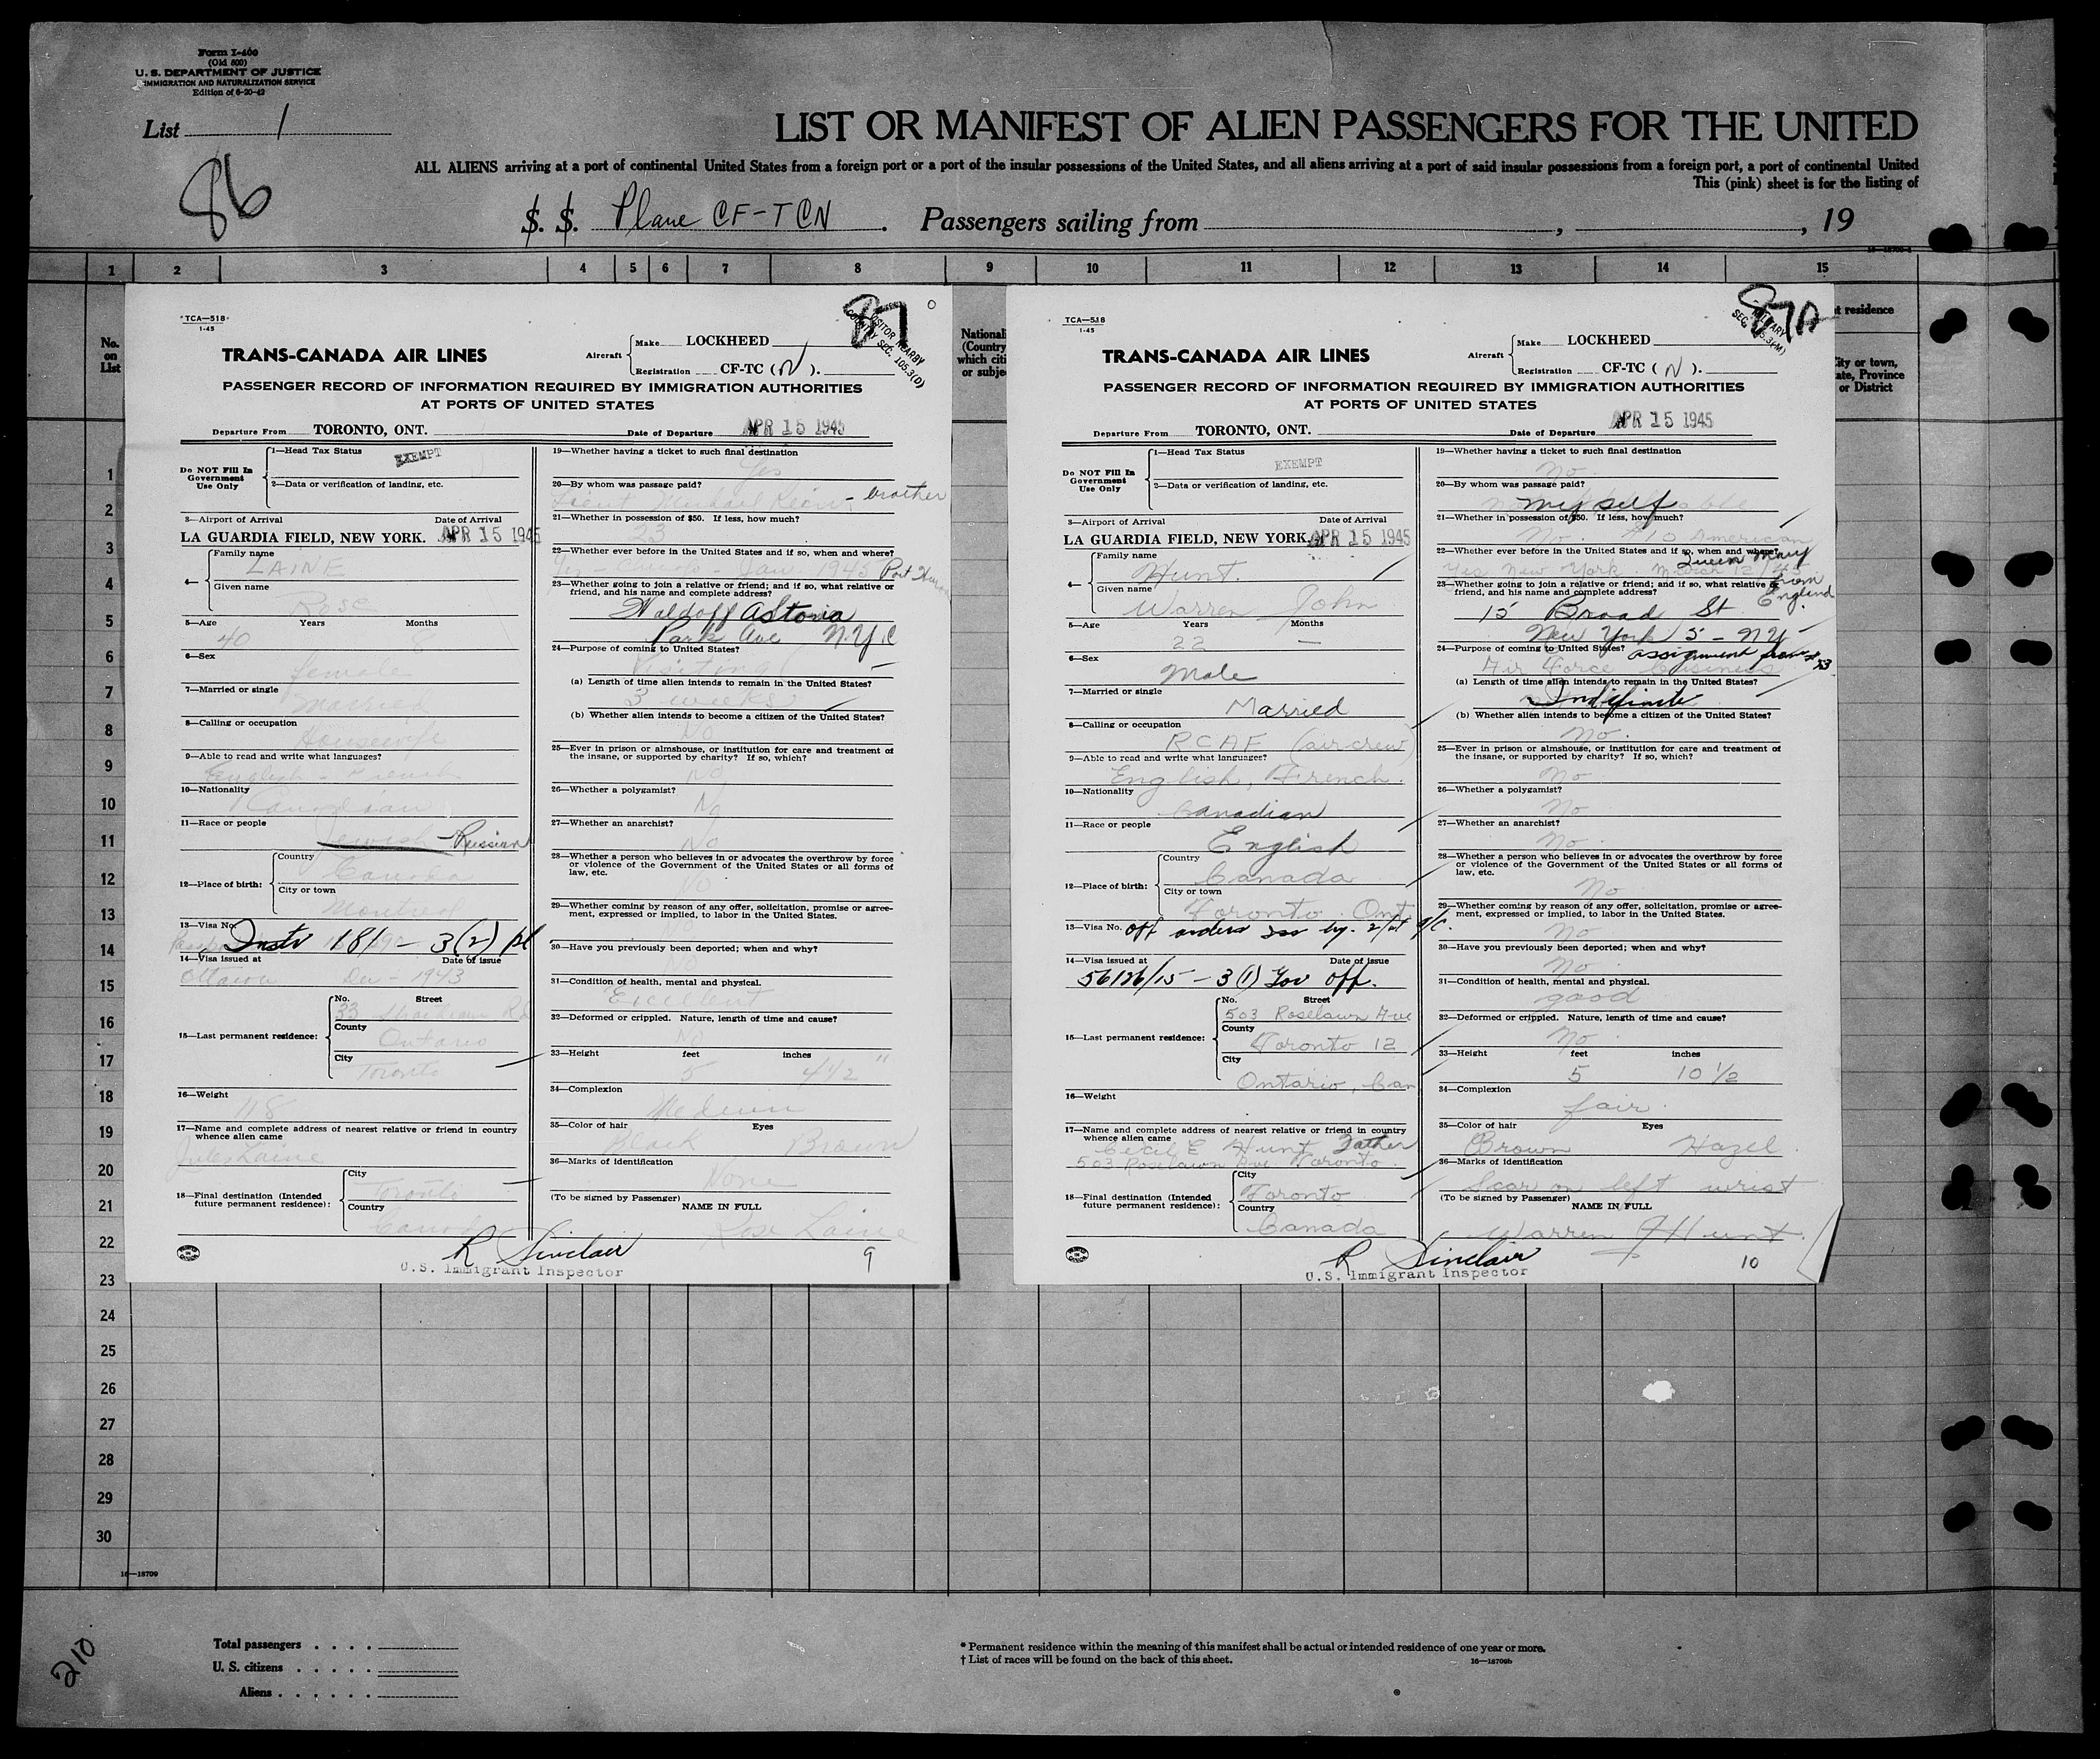 Form I-400
(Old 500)
U. S. DEPARTMENT OF JUSTICE
IMMIGRATION AND NATURALIZATION SERVICE
Edition of 6-20-42
List 1
86
LIST OR MANIFEST OF ALIEN PASSENGERS FOR THE UNITED
ALL ALIENS arriving at a port of continental United States from a foreign port or a port of the insular possessions of the United States, and all aliens arriving at a port of said insular possessions from a foreign port, a port of continental United
This (pink) sheet is for the listing of
S. S. Plane CF-TCN . Passengers sailing from , , 19
1 2 3 4 5 6 7 8 9 10 11 12 13 14 15
No. on List
1
2
3
4
5
6
7
8
9
10
11
12
13
14
15
16
17
18
19
20
21
22
23
24
25
26
27
28
29
30
TCA—518
1-45
87
TRANS-CANADA AIR LINES
Aircraft
Make LOCKHEED
Registration CF-TC (N).
SEC. 105.3(D)
PASSENGER RECORD OF INFORMATION REQUIRED BY IMMIGRATION AUTHORITIES
AT PORTS OF UNITED STATES
Departure From TORONTO, ONT.
Date of Departure APR 15 1945
Do NOT Fill In Government Use Only
1—Head Tax Status EXEMPT
2—Data or verification of landing, etc.
3—Airport of Arrival Date of Arrival
LA GUARDIA FIELD, NEW YORK. APR 15 1945
4— Family name
LAINE
Given name
Rose
5—Age Years Months
40
6—Sex
female
7—Married or single
Married
8—Calling or occupation
Housewife
9—Able to read and write what languages?
English - French
10—Nationality
Canadian
11—Race or people
Jewish - Russian
12—Place of birth:
Country
Canada
City or town
Montreal
13—Visa No.
Instr 181 - 3(2)
14—Visa issued at Date of issue
Ottawa Dec - 1943
15—Last permanent residence:
No. Street
33 Rd
County
Ontario
City
Toronto
16—Weight
118
17—Name and complete address of nearest relative or friend in country whence alien came
Jules Laine
18—Final destination (Intended future permanent residence):
City
Toronto
Country
Canada
19—Whether having a ticket to such final destination
Yes
20—By whom was passage paid?
Michael - brother
21—Whether in possession of $50. If less, how much?
23
22—Whether ever before in the United States and if so, when and where?
Yes - Jan 1945 Port Huron
23—Whether going to join a relative or friend; and if so, what relative or friend, and his name and complete address?
Waldoff Astoria
Park Ave N.Y.C
24—Purpose of coming to United States?
Visiting
(a) Length of time alien intends to remain in the United States?
3 weeks
(b) Whether alien intends to become a citizen of the United States?
No
25—Ever in prison or almshouse, or institution for care and treatment of the insane, or supported by charity? If so, which?
No
26—Whether a polygamist?
No
27—Whether an anarchist?
No
28—Whether a person who believes in or advocates the overthrow by force or violence of the Government of the United States or all forms of law, etc.
No
29—Whether coming by reason of any offer, solicitation, promise or agreement, expressed or implied, to labor in the United States.
30—Have you previously been deported; when and why?
31—Condition of health, mental and physical.
Excellent
32—Deformed or crippled. Nature, length of time and cause?
No
33—Height feet inches
5 4½"
34—Complexion
Medium
35—Color of hair Eyes
Black Brown
36—Marks of identification
None
(To be signed by Passenger) NAME IN FULL
Rose Laine
R Sinclair
U.S. Immigrant Inspector
9
TCA—518
1-45
87A
TRANS-CANADA AIR LINES
Aircraft
Make LOCKHEED
Registration CF-TC (N).
PASSENGER RECORD OF INFORMATION REQUIRED BY IMMIGRATION AUTHORITIES
AT PORTS OF UNITED STATES
Departure From TORONTO, ONT.
Date of Departure APR 15 1945
Do NOT Fill In Government Use Only
1—Head Tax Status EXEMPT
2—Data or verification of landing, etc.
3—Airport of Arrival Date of Arrival
LA GUARDIA FIELD, NEW YORK. APR 15 1945
4— Family name
Hunt.
Given name
Warren John
5—Age Years Months
22 —
6—Sex
Male
7—Married or single
Married
8—Calling or occupation
RCAF (aircrew)
9—Able to read and write what languages?
English, French.
10—Nationality
Canadian
11—Race or people
English
12—Place of birth:
Country
Canada
City or town
Toronto Ont
13—Visa No. off orders
14—Visa issued at Date of issue
56126/15 - 3(1) Gov off.
15—Last permanent residence:
No. Street
503 Roselawn Ave
County
Toronto 12
City
Ontario, Can
16—Weight
17—Name and complete address of nearest relative or friend in country whence alien came
Cecil E Hunt Father
503 Roselawn Ave Toronto
18—Final destination (Intended future permanent residence):
City
Toronto
Country
Canada
19—Whether having a ticket to such final destination
No.
20—By whom was passage paid?
myself
21—Whether in possession of $50. If less, how much?
No. $10 American
22—Whether ever before in the United States and if so, when and where?
Yes New York March Queen Mary from England.
23—Whether going to join a relative or friend; and if so, what relative or friend, and his name and complete address?
15 Broad St
New York 5 - NY
24—Purpose of coming to United States?
Air Force business assignment from #23
(a) Length of time alien intends to remain in the United States?
Indifinite
(b) Whether alien intends to become a citizen of the United States?
No.
25—Ever in prison or almshouse, or institution for care and treatment of the insane, or supported by charity? If so, which?
No
26—Whether a polygamist?
No
27—Whether an anarchist?
No.
28—Whether a person who believes in or advocates the overthrow by force or violence of the Government of the United States or all forms of law, etc.
No
29—Whether coming by reason of any offer, solicitation, promise or agreement, expressed or implied, to labor in the United States.
No
30—Have you previously been deported; when and why?
No.
31—Condition of health, mental and physical.
good
32—Deformed or crippled. Nature, length of time and cause?
No
33—Height feet inches
5 10 ½
34—Complexion
fair.
35—Color of hair Eyes
Brown Hazel
36—Marks of identification
Scar on left wrist
(To be signed by Passenger) NAME IN FULL
Warren J Hunt.
R Sinclair
U.S. Immigrant Inspector
10
residence
City or town,
Province
or District
16—18709
Total passengers . . . .
U. S. citizens . . . . .
Aliens . . . . . .
210
* Permanent residence within the meaning of this manifest shall be actual or intended residence of one year or more.
† List of races will be found on the back of this sheet.
16—18709b